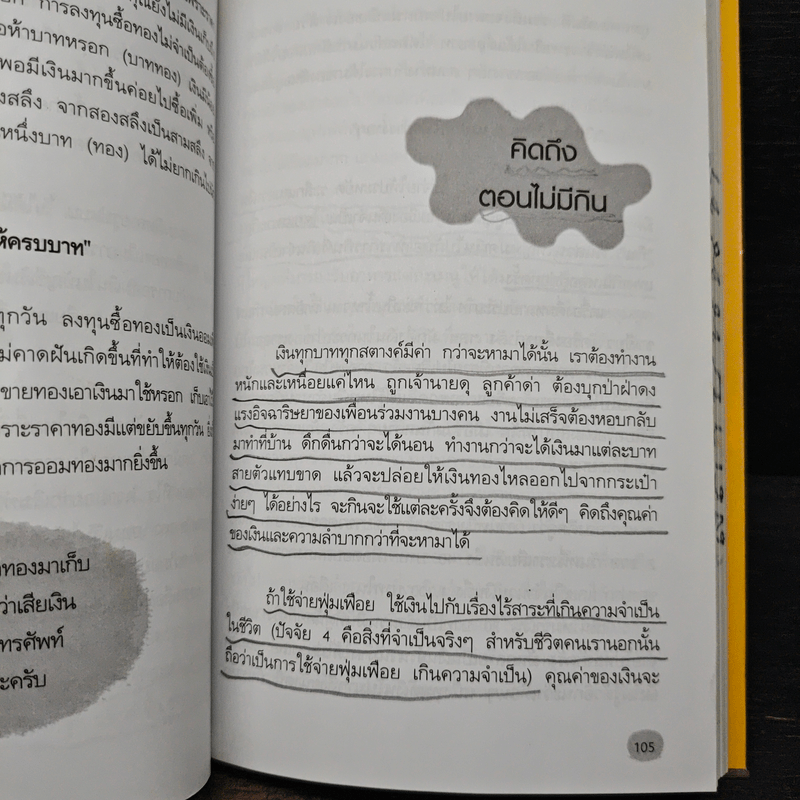 การลงทุนซื้อทองไม่จำเป็นต้อง
ห้าบาทหรอก (บาททอง)
พอมีเงินมากขึ้นค่อยไปซื้อเพิ่ม
สลึง จากสองสลึงเป็นสามสลึง
หนึ่งบาท (ทอง) ได้ไม่ยากเกินไป
ห้ครบบาท"
ทุกวัน ลงทุนซื้อทองเป็นเงินออม
ม่คาดฝันเกิดขึ้นที่ทำให้ต้องใช้เงิน
ขายทองเอาเงินมาใช้หรอก
ราะราคาทองมีแต่ขยับขึ้นทุกวัน
การออมทองมากยิ่งขึ้น
ทองมาเก็บ
ว่าเสียเงิน
ทรศัพท์
ะครับ
คิดถึง
ตอนไม่มีกิน
เงินทุกบาททุกสตางค์มีค่า กว่าจะหามาได้นั้น เราต้องทำงาน
หนักและเหนื่อยแค่ไหน ถูกเจ้านายดุ ลูกค้าด่า ต้องบุกป่าฝ่าดง
แรงอิจฉาริษยาของเพื่อนร่วมงานบางคน งานไม่เสร็จต้องหอบกลับ
มาทำที่บ้าน ดึกดื่นกว่าจะได้นอน ทำงานกว่าจะได้เงินมาแต่ละบาท
สายตัวแทบขาด แล้วจะปล่อยให้เงินทองไหลออกไปจากกระเป๋า
ง่ายๆ ได้อย่างไร จะกินจะใช้แต่ละครั้งจึงต้องคิดให้ดีๆ คิดถึงคุณค่า
ของเงินและความลำบากกว่าที่จะหามาได้
ถ้าใช้จ่ายฟุ่มเฟือย ใช้เงินไปกับเรื่องไร้สาระที่เกินความจำเป็น
ในชีวิต (ปัจจัย 4 คือสิ่งที่จำเป็นจริงๆ สำหรับชีวิตคนเรานอกนั้น
ถือว่าเป็นการใช้จ่ายฟุ่มเฟือย เกินความจำเป็น) คุณค่าของเงินจะ
105